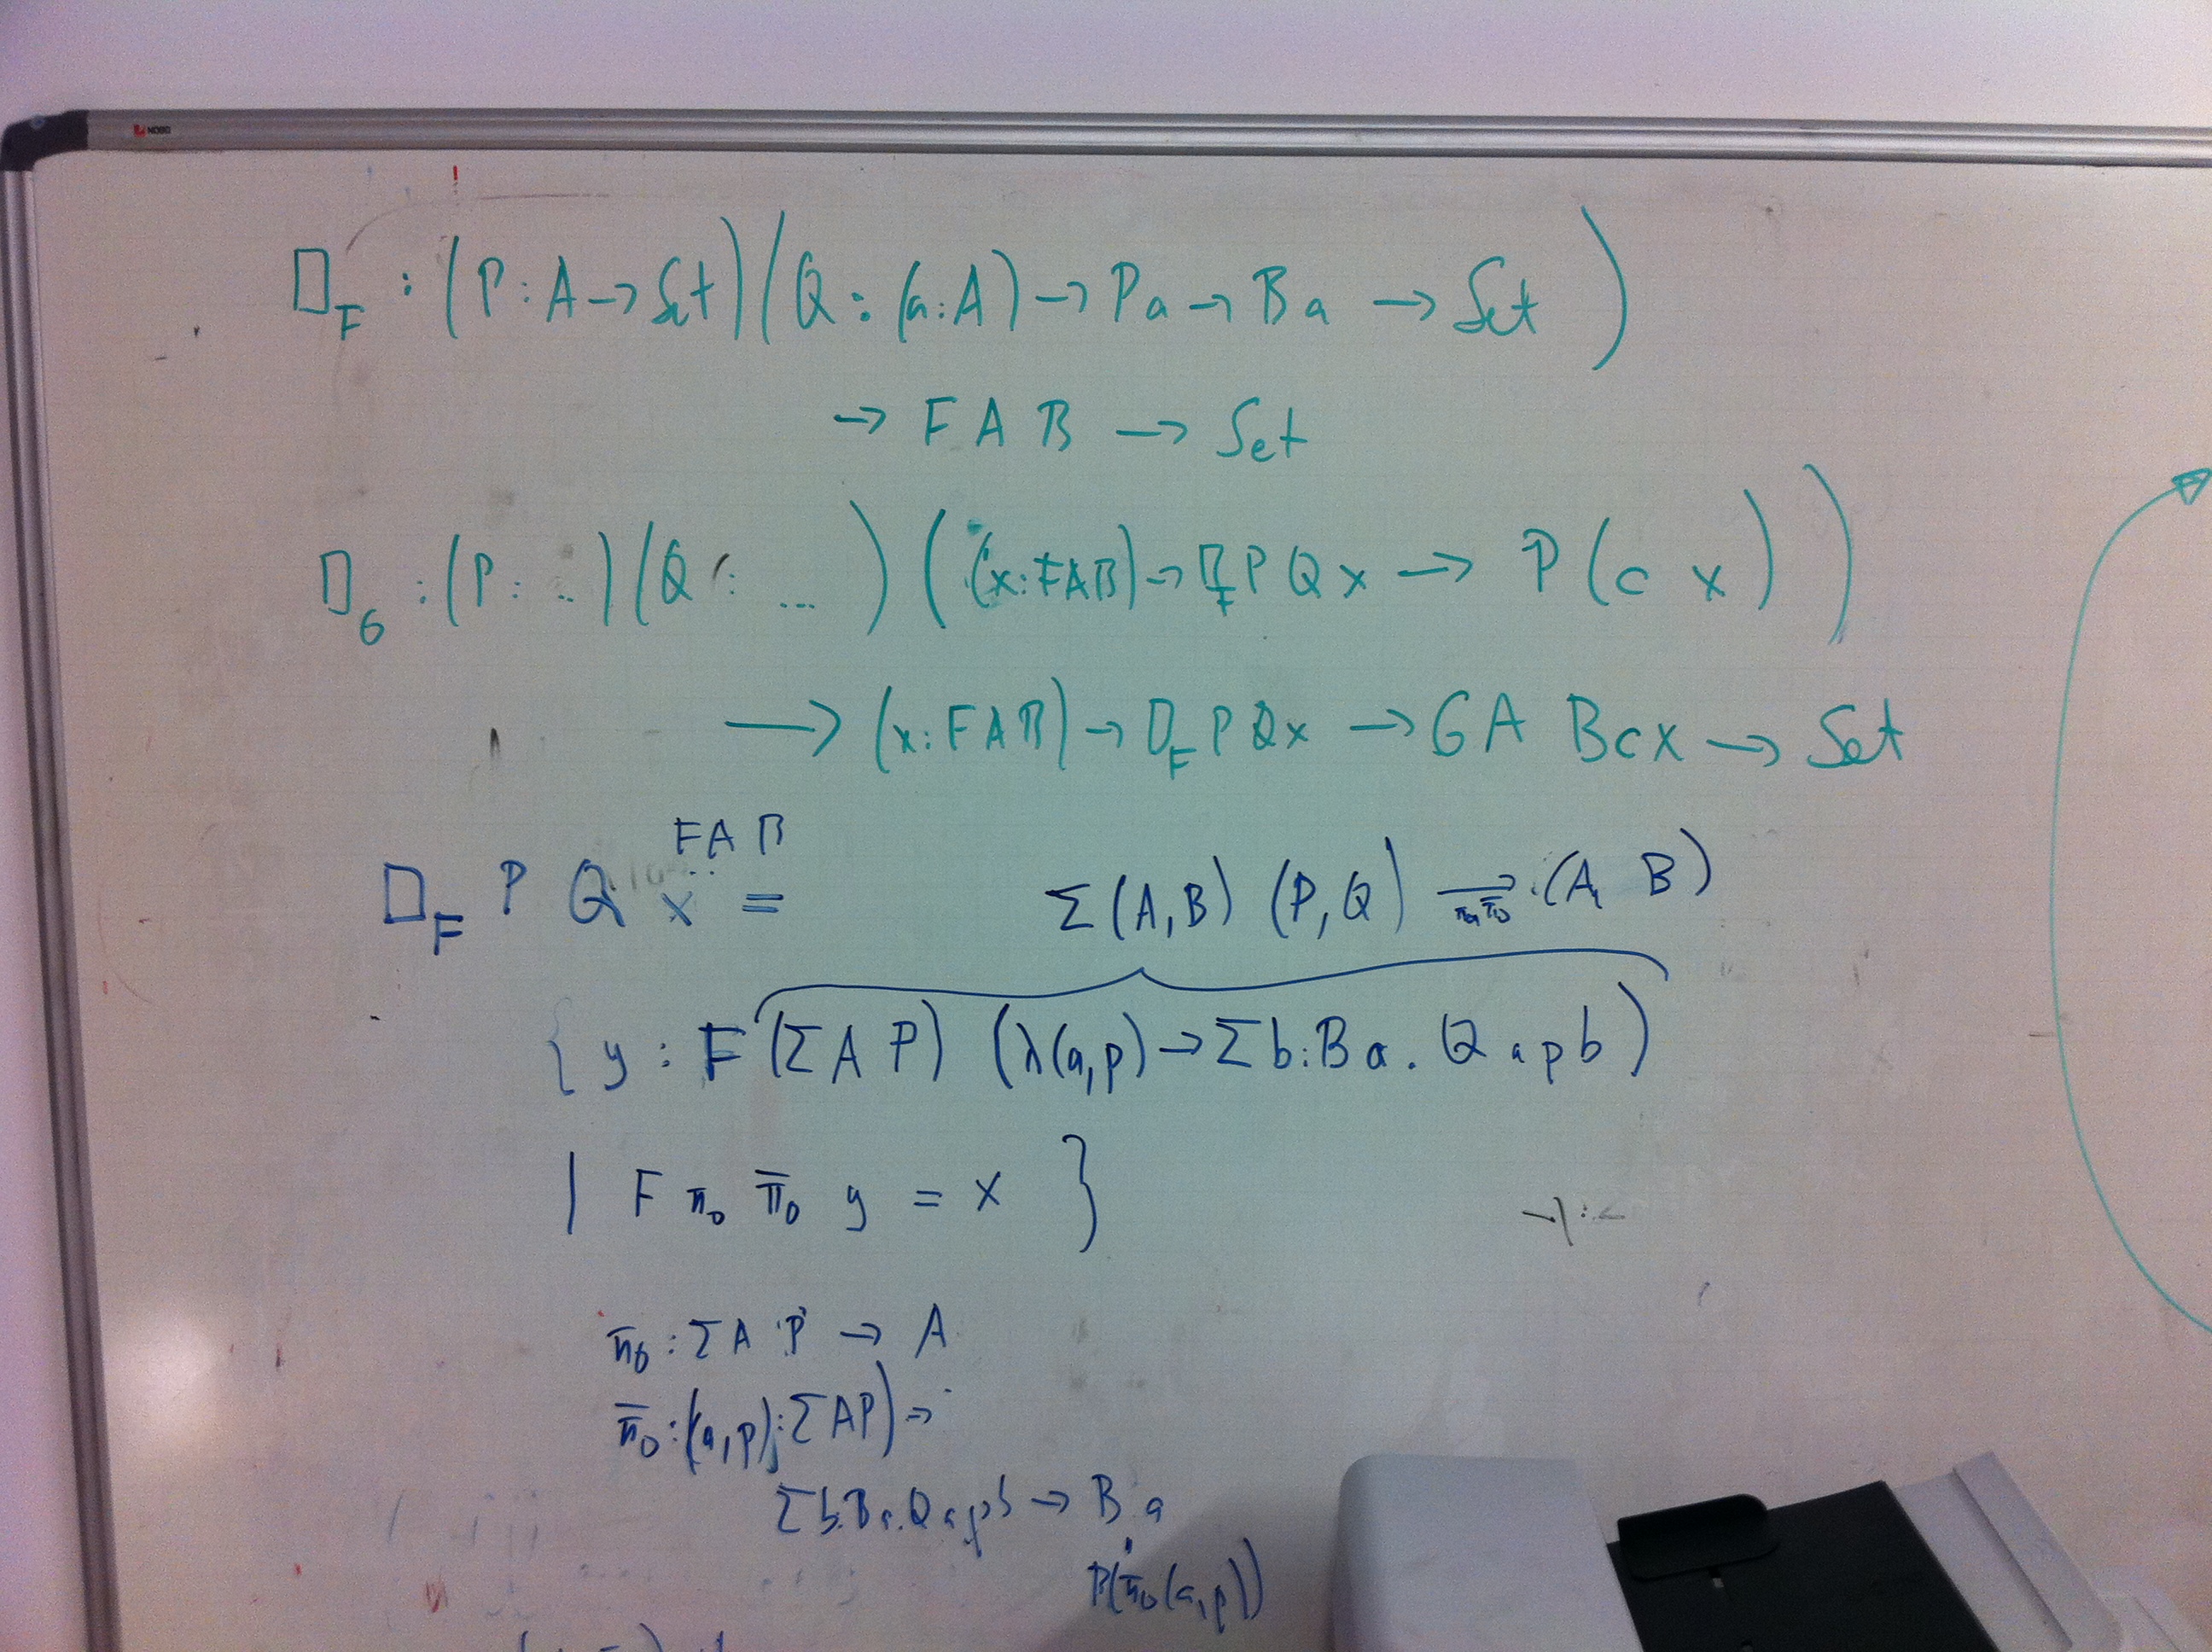 NOBO
□_F : (P : A → Set) (Q : (a : A) → P a → B a → Set)
→ F A B → Set
□_G : (P : ..) (Q : ...) ((x : F A B) → □_F P Q x → P (c x))
→ (x : F A B) → □_F P Q x → G A B c x → Set
F A B
□_F P Q x = Σ (A, B) (P, Q) → (A, B)
π₀, π̄₀
{ y : F (Σ A P) (λ(a,p) → Σ b : B a . Q a p b)
| F π₀ π̄₀ y = x }
π₀ : Σ A P → A
π̄₀ : ((a,p) : Σ A P) →
Σ b : B a . Q a p b → B a
B(π₀(a,p))